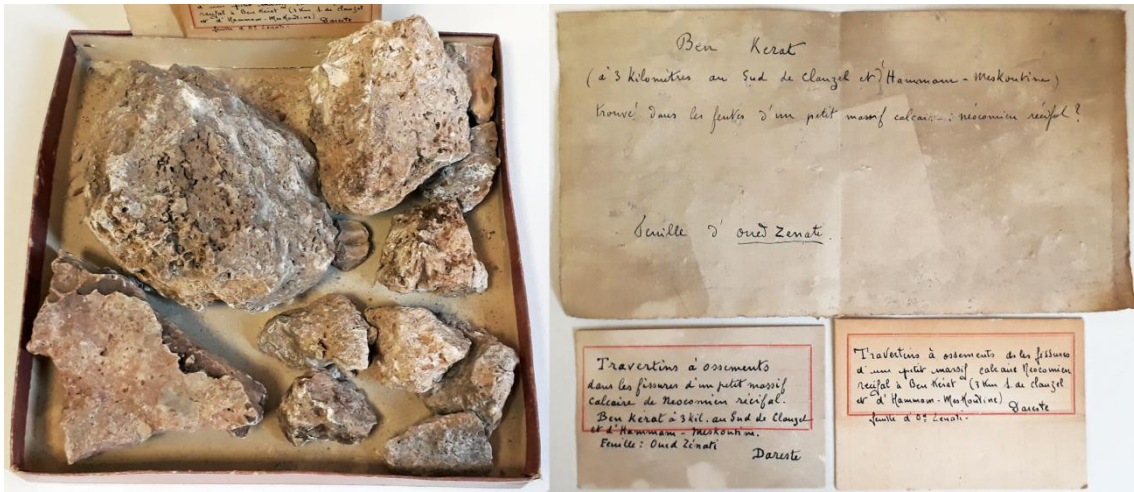 d'un petit massif calcaire Néocomien
récifal à Ben Keirat (3 Km S. de Clauzel
et d'Hammam-Meskoutine)
Dareste
feuille d'Od Zenati.
Ben Kerat
(à 3 kilomètres au Sud de Clauzel et d'Hammam-Meskoutine)
trouvé dans les fentes d'un petit massif calcaire : néocomien récifal ?
Feuille d'Oued Zenati.
Travertins à ossements
dans les fissures d'un petit massif
calcaire de Neocomien récifal.
Ben Kerat à 3 kil. au Sud de Clauzel
et d'Hammam-Meskoutine.
Feuille : Oued Zénati
Dareste
Travertins à ossements ds les fissures
d'un petit massif calcaire Néocomien
récifal à Ben Keirat (3 Km S. de Clauzel
et d'Hammam-Meskoutine)
Dareste
feuille d'Od Zenati.